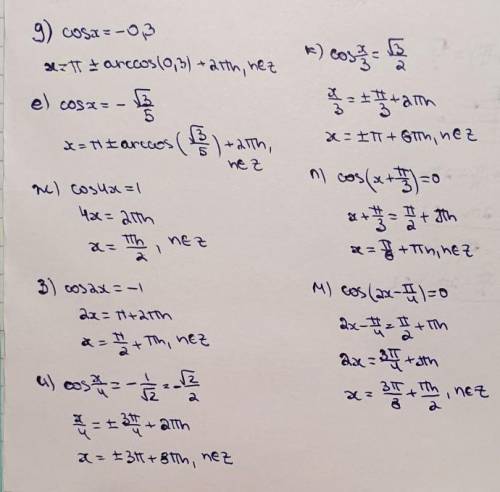 д) cosx = -0,3
x = π ± arccos(0,3) + 2πn, n∈z
е) cosx = -√3/5
x = π ± arccos(√3/5) + 2πn, n∈z
ж) cos4x = 1
4x = 2πn
x = πn/2, n∈z
з) cos2x = -1
2x = π + 2πn
x = π/2 + πn, n∈z
и) cos x/4 = -1/√2 = -√2/2
x/4 = ± 3π/4 + 2πn
x = ±3π + 8πn, n∈z
к) cos x/3 = √3/2
x/3 = ± π/3 + 2πn
x = ±π + 6πn, n∈z
л) cos(x + π/3) = 0
x + π/3 = π/2 + πn
x = π/6 + πn, n∈z
м) cos(2x - π/4) = 0
2x - π/4 = π/2 + πn
2x = 3π/4 + πn
x = 3π/8 + πn/2, n∈z